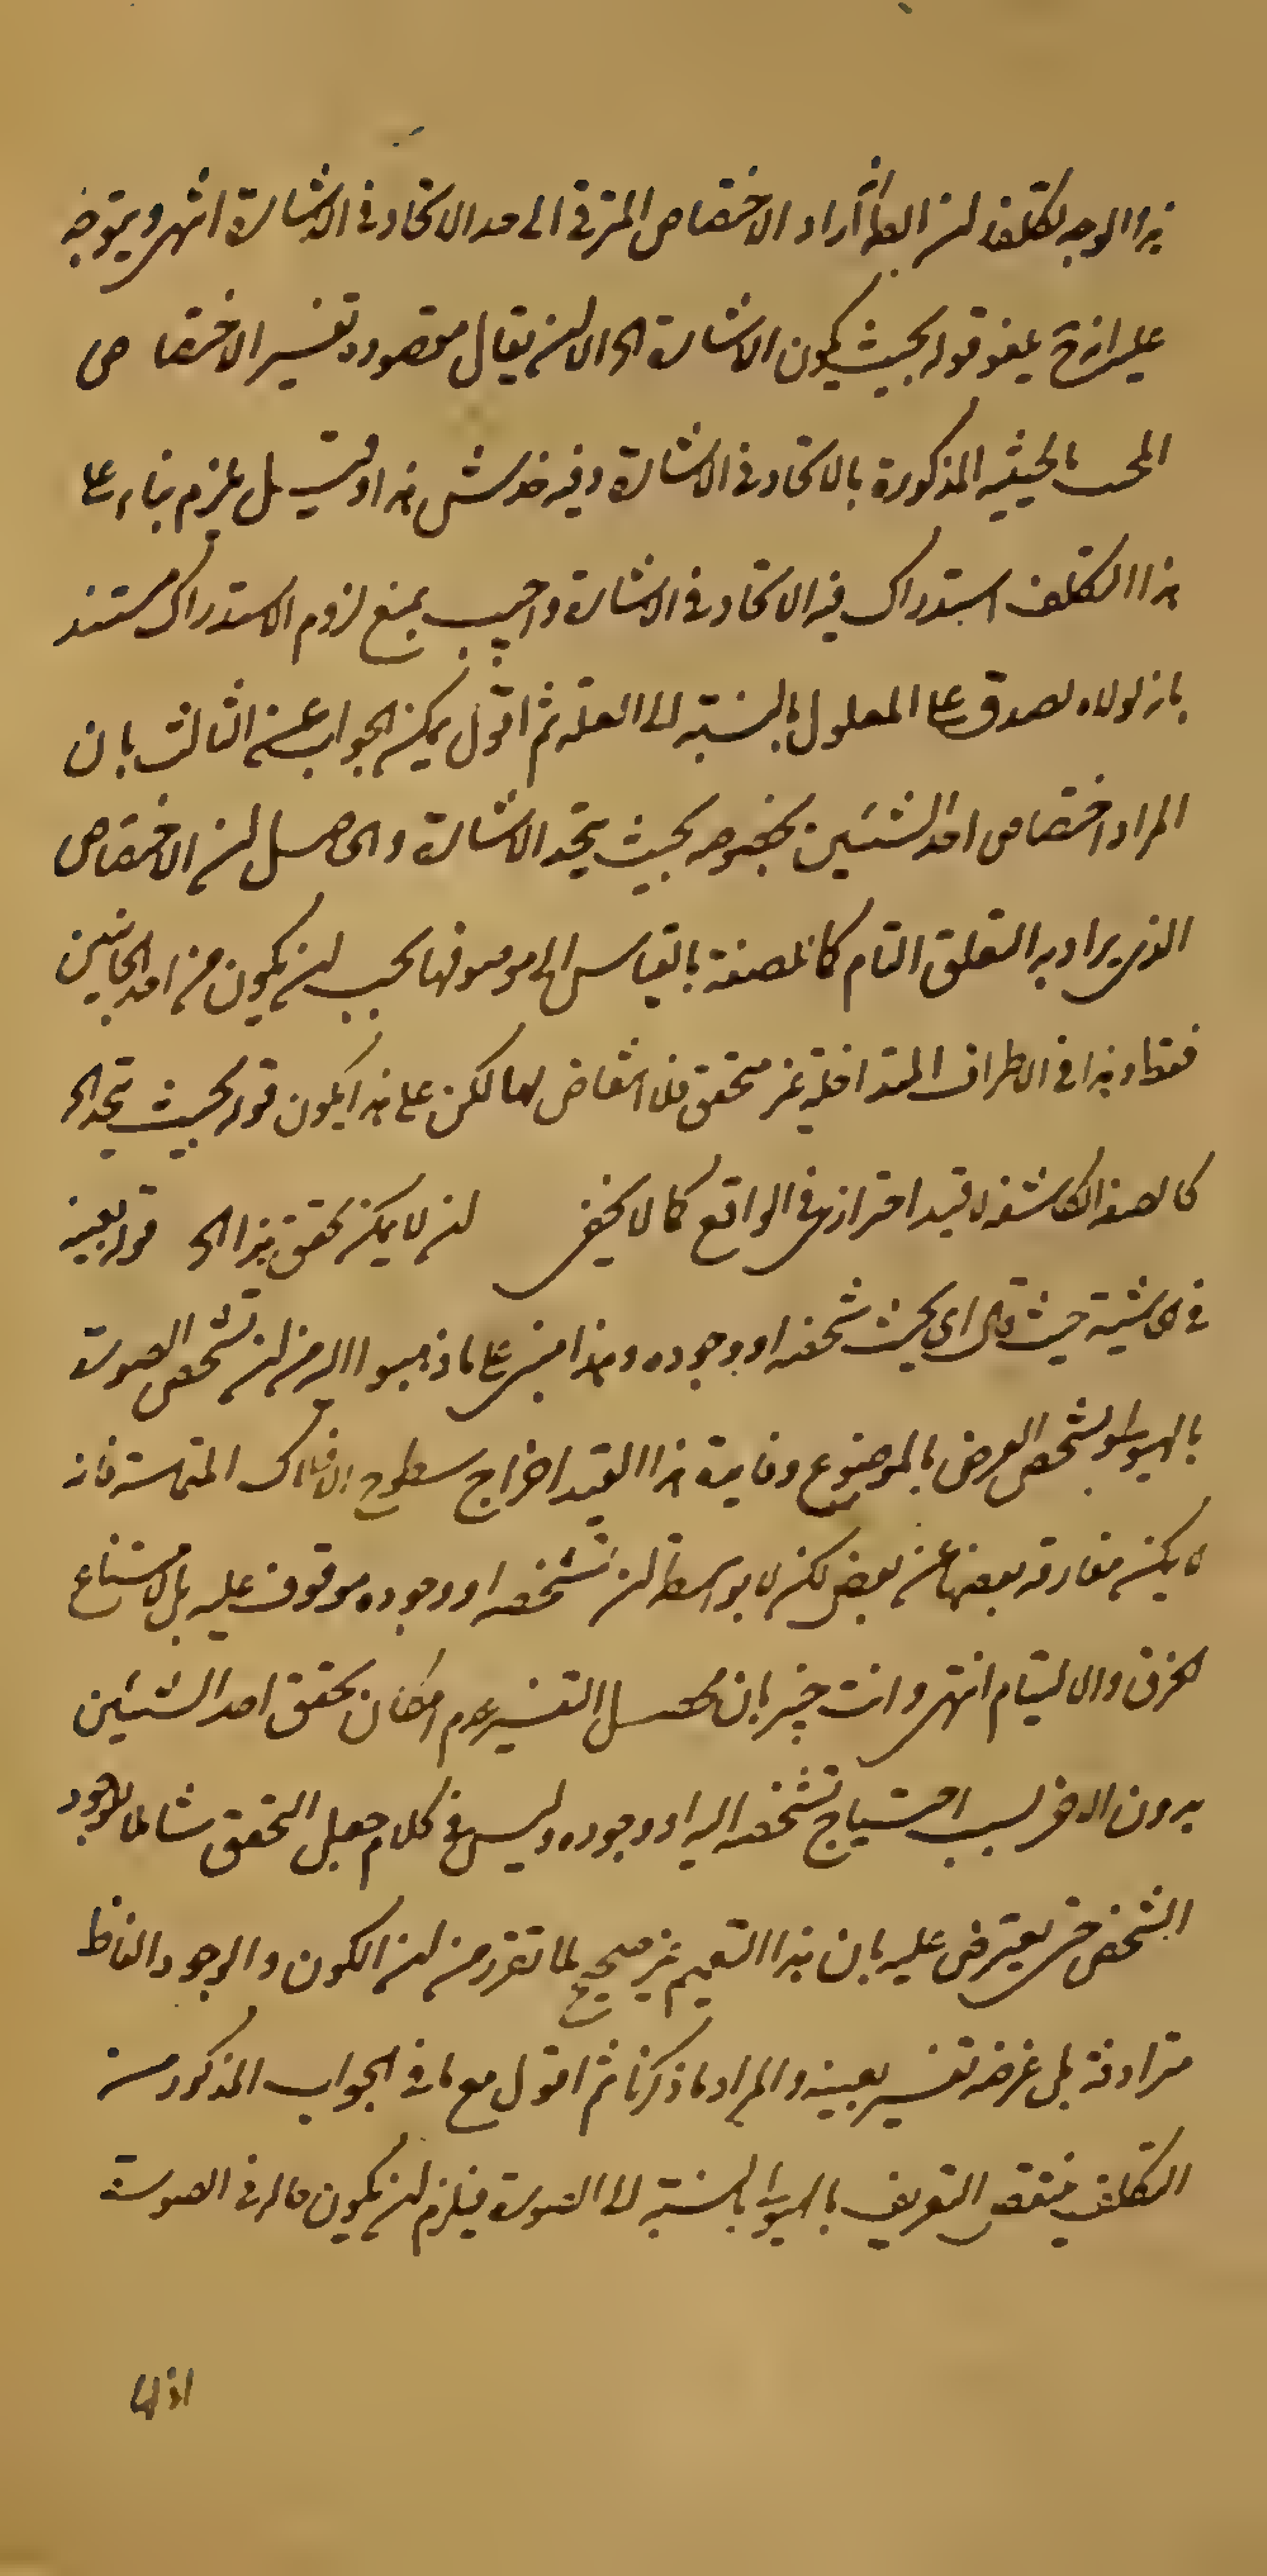 هذا الوجه تكلف لان الظ اراد الاختصاص المترقى الى حد الاتحاد فى الاشارة انتهى ويتوجه
عليه انه ح يلغو قوله بحيث يكون الاشارة الخ الا ان يقال مقصوده تفسير الاختصاص
بالحيثية المذكورة بالاتحاد فى الاشارة وفيه خدشة هذا وقيل يلزم بناء على
هذا التكلف استدراك قيد الاتحاد فى الاشارة واجيب بمنع لزوم الاستدراك مستندا
بانه لولاه لصدق على المعلول بالنسبة الى العلة ثم اقول يمكن الجواب عن الثالث بان
المراد اختصاص احد الشيئين بخصوصه بحيث يتحد الاشارة والحاصل ان الاختصاص
الذى يراد به التعلق التام كالصفة بالقياس الى موصوفها يجب ان يكون من احد الجانبين
فقط وهذا فى الاطراف المتداخلة غير متحقق فلا انتقاض بها لكن على هذا يكون قوله بحيث يتحد الخ
كالصفة الكاشفة لا قيد احترازى فى الواقع كما لا يخفى ان لا يمكن تحقق هذا الخ قوله بعينه
فى الحاشية حيث قال اى بحيث تشخصه او وجوده وهذا مبنى على ما ذهبوا اليه من ان تشخص الصورة
بالهيولى وتشخص العرض بالموضوع وفايدة هذا القيد اخراج سطوح الافلاك المتماسة فانه
لا يمكن مفارقة بعضها عن بعض لكن لا بواسطة ان تشخصه او وجوده موقوف عليه بل لامتناع
الخرق والالتيام انتهى وانت خبير بان محصل التفسير عدم امكان تحقق احد الشيئين
بدون الاخر بسبب احتياج تشخصه اليه او وجوده وليس فى كلام جعل التحقق شاملا للوجود
التشخص حتى يعترض عليه بان هذا التعميم غير صحيح لما تقرر من ان الكون والوجود الفاظ
مترادفة بل غرضه تفسير بعينه والمراد ما ذكرنا ثم اقول مع ما فى الجواب المذكور من
التكلف ينتقض التعريف بالهيولى بالنسبة الى الصورة فيلزم ان يكون حالة فى الصورة
اذ لها